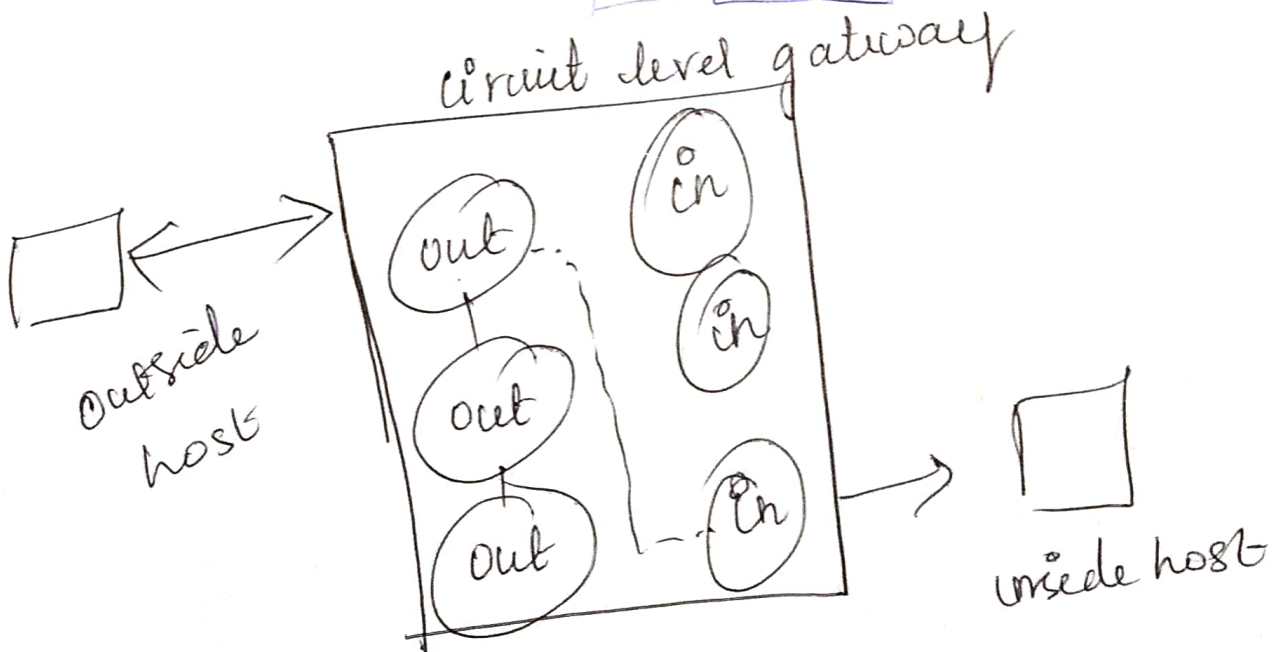 circuit level gateway
in
out
in
out
in
out
outside
host
inside host